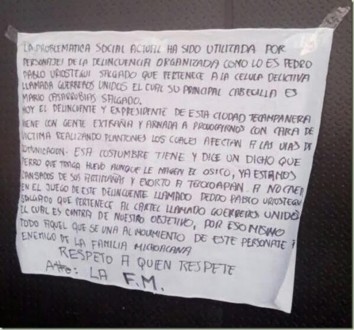 LA PROBLEMATICA SOCIAL ACTUAL HA SIDO UTILITADA POR
PERSONAJES DE LA DELINCUENCIA ORGANIZADA COMO LO ES PEDRO
PABLO UROSTEGUI SALGADO QUE PERTENECE A LA CELULA DELICTIVA
LLAMADA GUERREROS UNIDOS EL CUAL SU PRINCIPAL CABECILLA ES
MARIO CASARRUBIAS SALGADO.
HOY EL DELINCUENTE Y EXPRESIDENTE DE ESTA CIUDAD
VIENE CON GENTE EXTRAÑA Y ARMADA A CON CARA DE
VICTIMA REALIZANDO PLANTONES LOS CUALES AFECTAN A LAS VIAS DE
COMUNICACION. ESTA COSTUMBRE TIENE Y DICE UN DICHO QUE
PERRO QUE HUEVO AUNQUE LE EL OSICO, YA ESTAMOS
CANSADOS DE SUS Y A TELOLOAPAN. A NO CAER
EN EL JUEGO DE ESTE DELINCUENTE LLAMADO PEDRO PABLO UROSTEGUI
SALGADO QUE PERTENECE AL CARTEL LLAMADO GUERREROS UNIDOS
EL CUAL ES CONTRA DE NUESTRO OBJETIVO, POR ESO MISMO
TODO AQUEL QUE SE UNA AL MOVIMIENTO DE ESTE PERSONAJE
ENEMIGO DE LA FAMILIA MICHOACANA
RESPETO A QUIEN RESPETE
LA F.M.